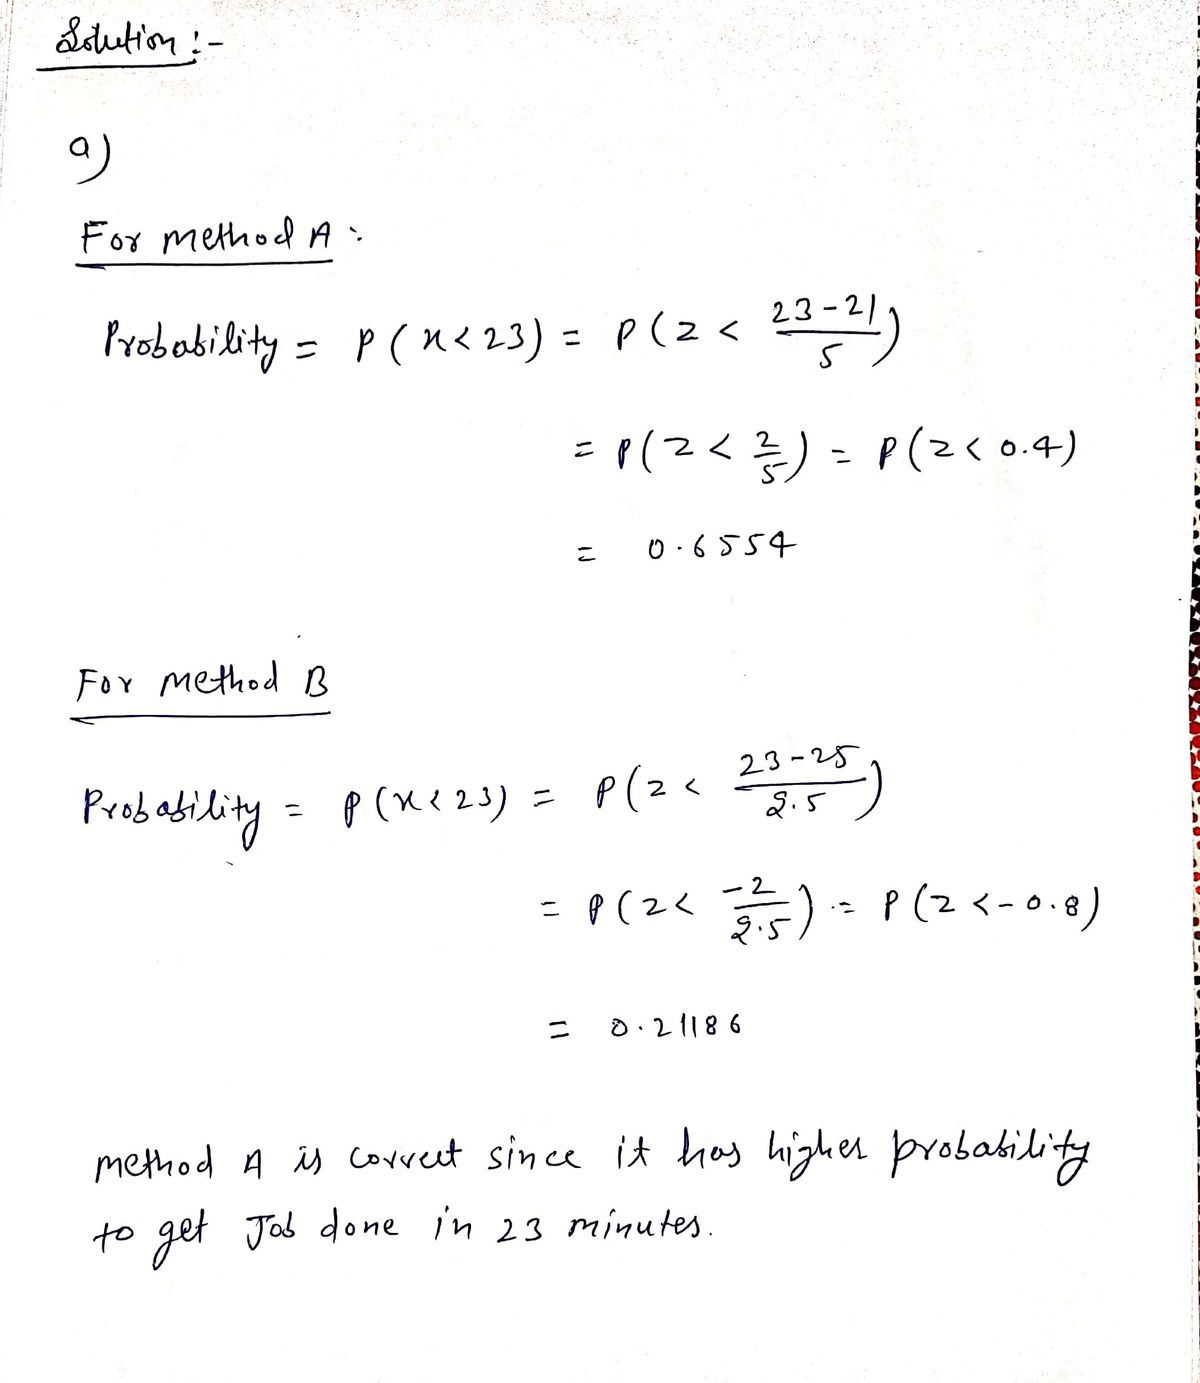 Solution :-
a)
For method A :
Probability = P ( x < 23 ) = P ( z < (23-21)/5 )
= P ( z < 2/5 ) = P ( z < 0.4 )
= 0.6554
For method B
Probability = P ( x < 23 ) = P ( z < (23-25)/2.5 )
= P ( z < -2/2.5 ) = P ( z < -0.8 )
= 0.21186
method A is correct since it has higher probability
to get Job done in 23 minutes.